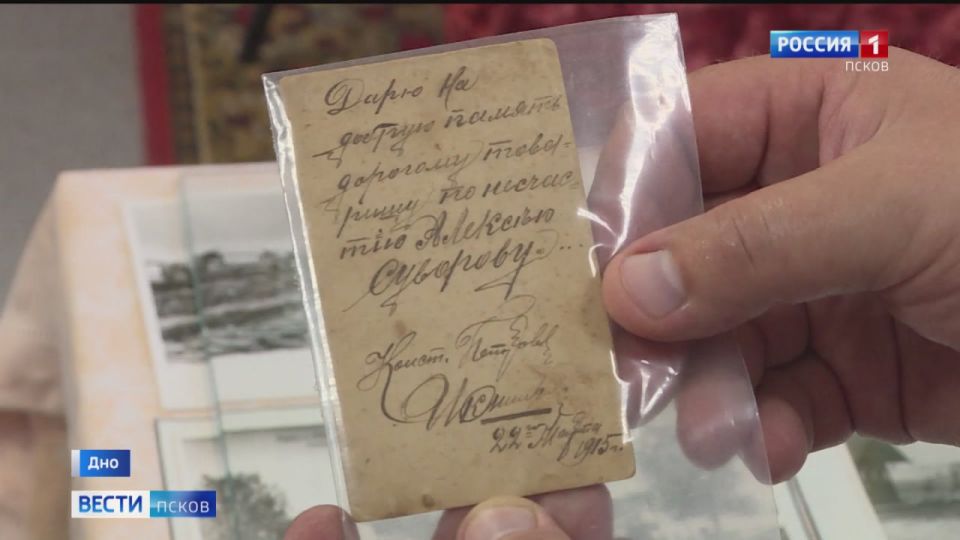 РОССИЯ 1
ПСКОВ
Дарю на
добрую память
дорогому това-
рищу по несчас-
тію Алексѣю
Суворову...
Конст. Петр
22го Марта
1915 г.
Дно
ВЕСТИ ПСКОВ